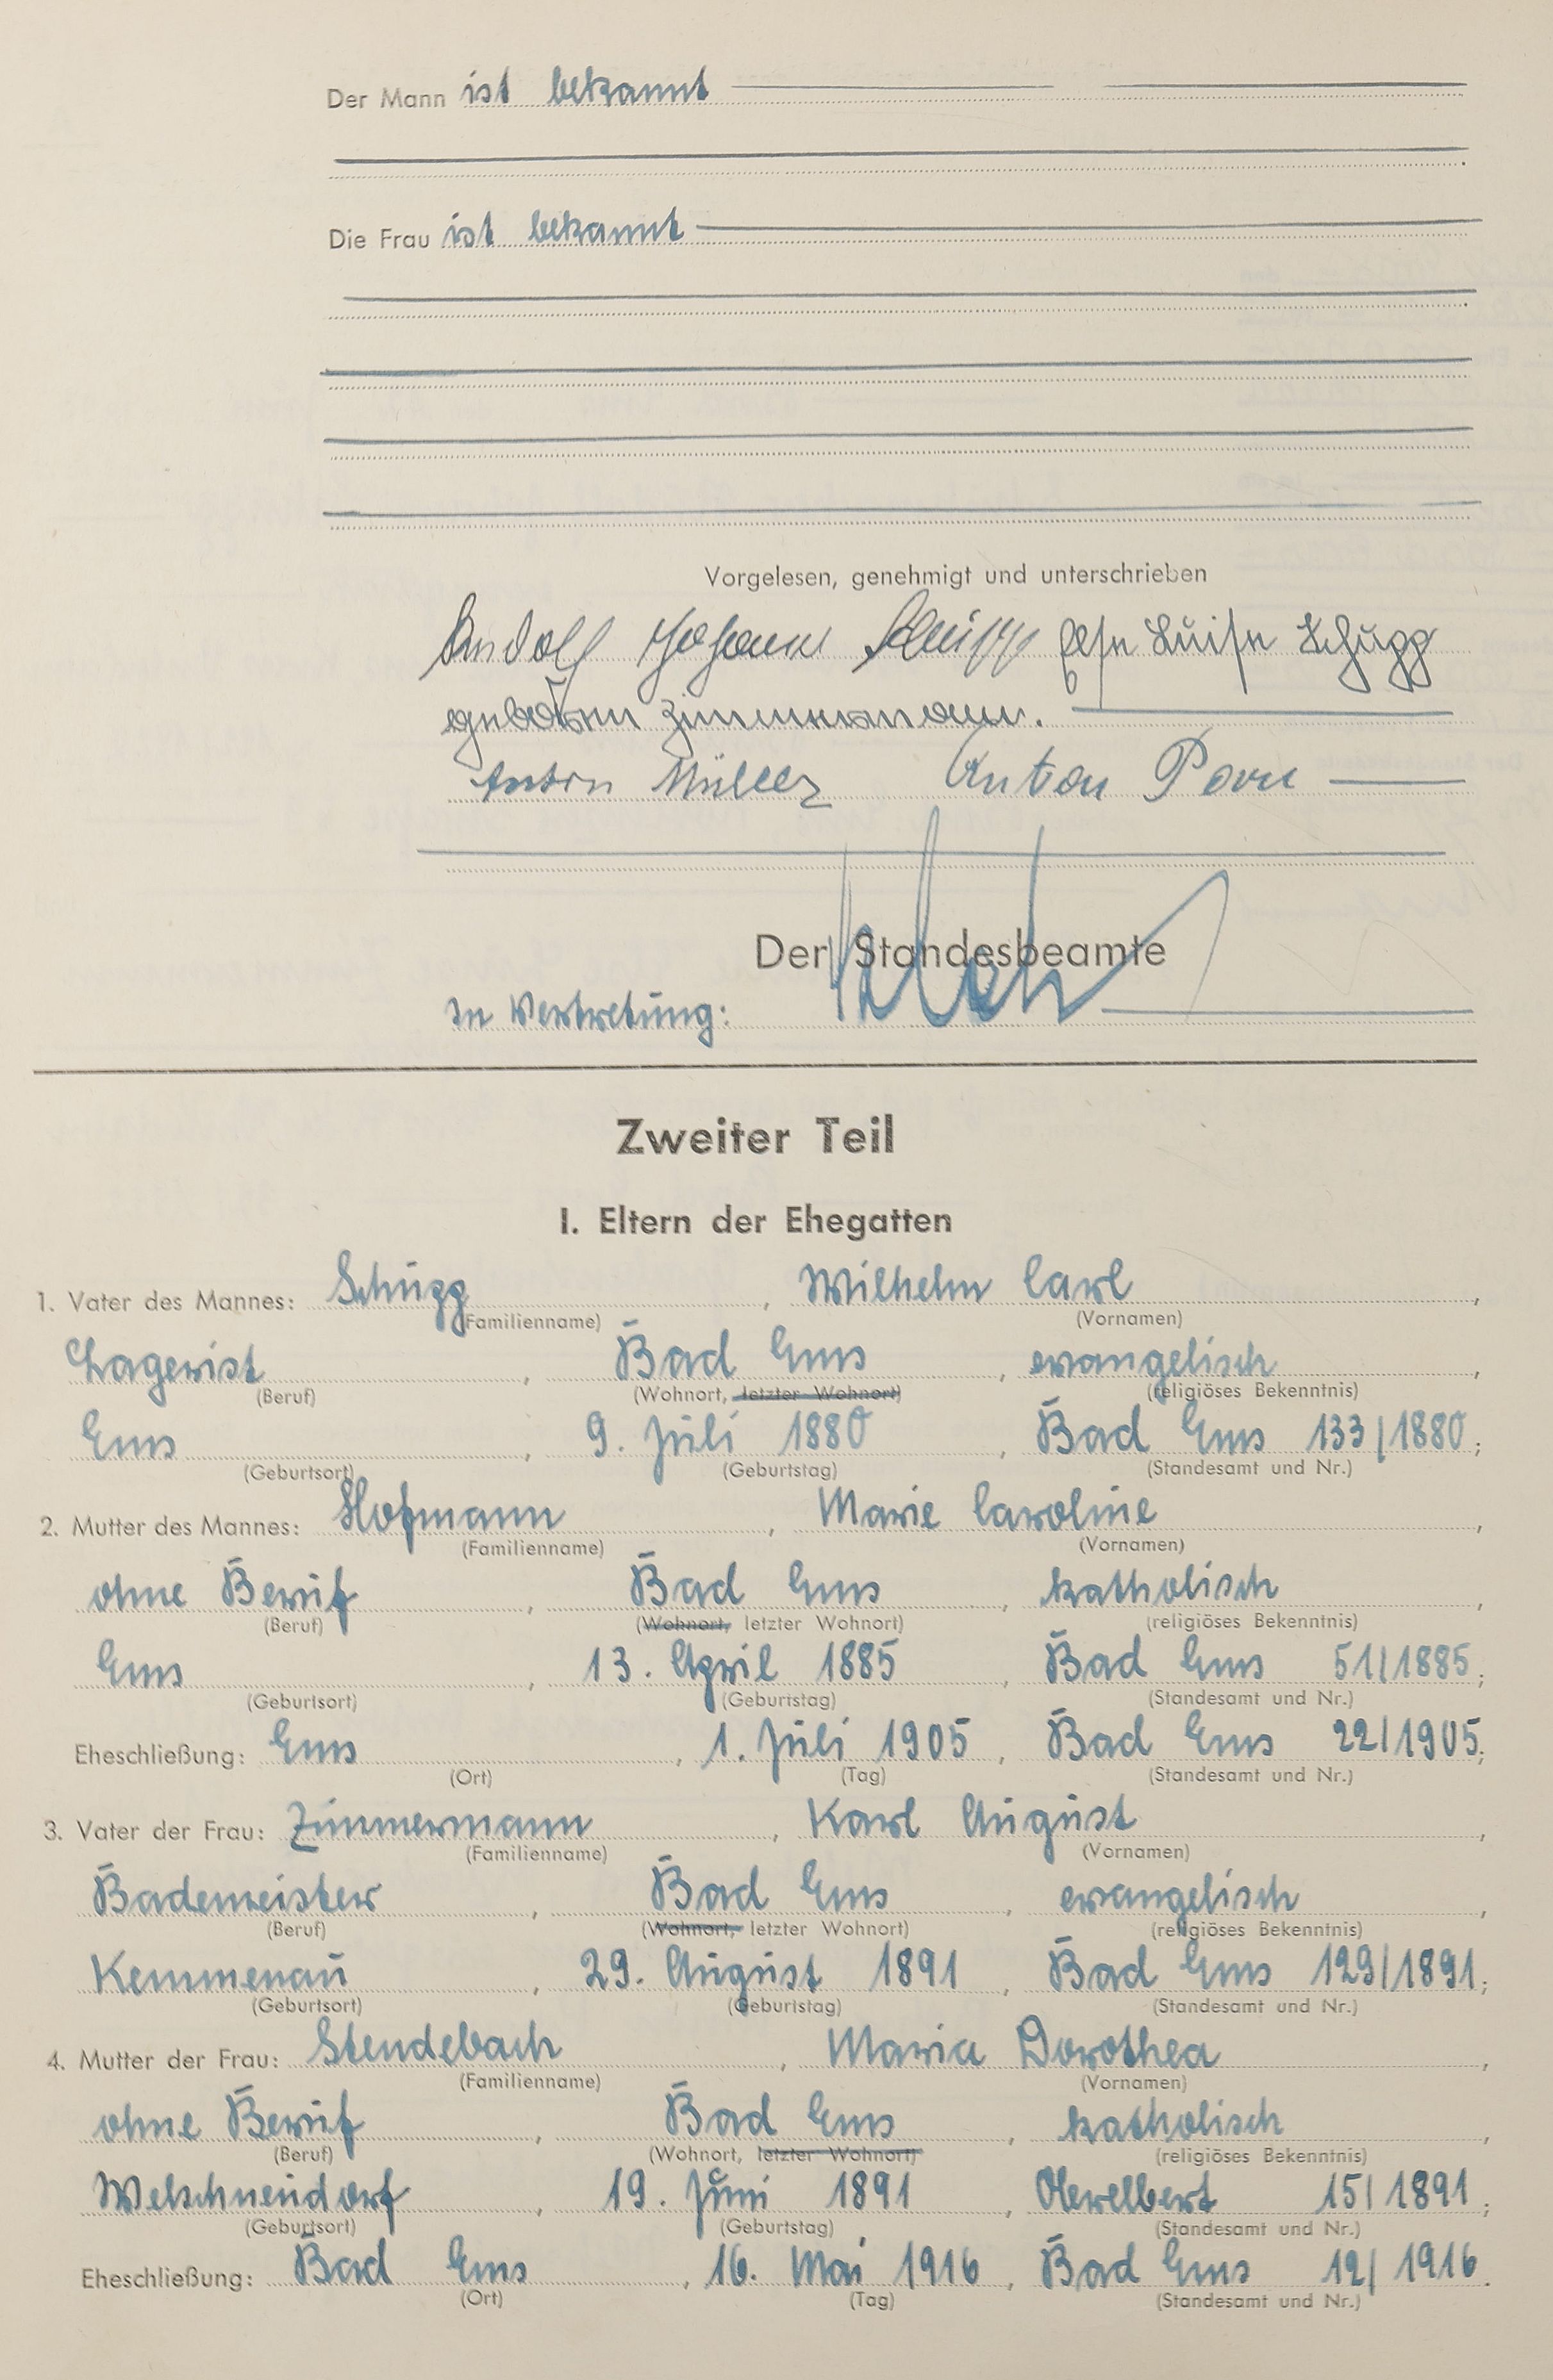 Der Mann ist bekannt
Die Frau ist bekannt
Vorgelesen, genehmigt und unterschrieben
Rudolf Johann Schupp Else Luise Schugg
geborene Zimmermann.
Anton Müller Anton Porn
Der Standesbeamte
In Vertretung:
Zweiter Teil
I. Eltern der Ehegatten
1. Vater des Mannes: Schugg, Wilhelm Carl,
(Familienname) (Vornamen)
Lagerist, Bad Ems, evangelisch,
(Beruf) (Wohnort, letzter Wohnort) (religiöses Bekenntnis)
Ems, 9. Juli 1880, Bad Ems 133/1880;
(Geburtsort) (Geburtstag) (Standesamt und Nr.)
2. Mutter des Mannes: Hofmann, Marie Caroline,
(Familienname) (Vornamen)
ohne Beruf, Bad Ems, katholisch,
(Beruf) (Wohnort, letzter Wohnort) (religiöses Bekenntnis)
Ems, 13. April 1885, Bad Ems 51/1885;
(Geburtsort) (Geburtstag) (Standesamt und Nr.)
Eheschließung: Ems, 1. Juli 1905, Bad Ems 22/1905;
(Ort) (Tag) (Standesamt und Nr.)
3. Vater der Frau: Zimmermann, Karl August,
(Familienname) (Vornamen)
Bademeister, Bad Ems, evangelisch,
(Beruf) (Wohnort, letzter Wohnort) (religiöses Bekenntnis)
Kemmenau, 29. August 1891, Bad Ems 129/1891;
(Geburtsort) (Geburtstag) (Standesamt und Nr.)
4. Mutter der Frau: Stendebach, Maria Dorothea,
(Familienname) (Vornamen)
ohne Beruf, Bad Ems, katholisch,
(Beruf) (Wohnort, letzter Wohnort) (religiöses Bekenntnis)
Welschneudorf, 19. Juni 1891, Oberelbert 15/1891;
(Geburtsort) (Geburtstag) (Standesamt und Nr.)
Eheschließung: Bad Ems, 16. Mai 1916, Bad Ems 12/1916.
(Ort) (Tag) (Standesamt und Nr.)